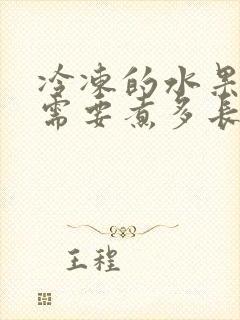 冷凍的水果
需要煮多長
王程